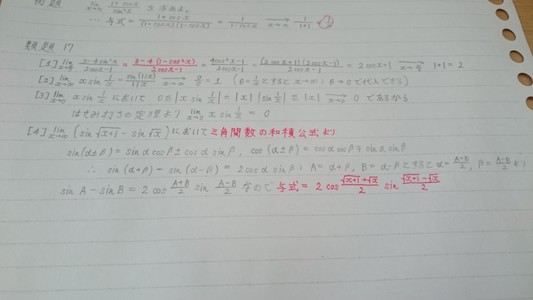 lim x→π (1+cosx)/sin²x を求めよ。
… 与式 = (1+cosx)/((1+cosx)(1-cosx)) = 1/(1-cosx) → x→π 1/(1+1)
類題 17
[1] lim (3-4sin²x)/(2cosx-1) = (3-4(1-cos²x))/(2cosx-1) = (4cos²x-1)/(2cosx-1) = ((2cosx+1)(2cosx-1))/(2cosx-1) = 2cosx+1 → 1+1=2
[2] lim x→∞ x sin 1/x = sin(1/x)/(1/x) → x→∞ = 1 (θ=1/xとすると x→∞ ⇔ θ→0 で代入できる)
[3] lim x→0 x sin 1/x において 0≦|x sin 1/x|=|x||sin 1/x|≦|x| → x→0 0 であるから
はさみ打ちの定理より lim x→0 x sin 1/x = 0
[4] lim x→∞ (sin√x+1 - sin√x) において三角関数の和積公式より
sin(α±β) = sinα cosβ ± cosα sinβ, cos(α±β) = cosα cosβ ∓ sinα sinβ
∴ sin(α+β) - sin(α-β) = 2cosα sinβ ; A=α+β, B=α-β とすると α=(A+B)/2, β=(A-B)/2 より
sin A - sin B = 2 cos (A+B)/2 sin (A-B)/2 なので 与式 = 2 cos (√x+1+√x)/2 sin (√x+1-√x)/2